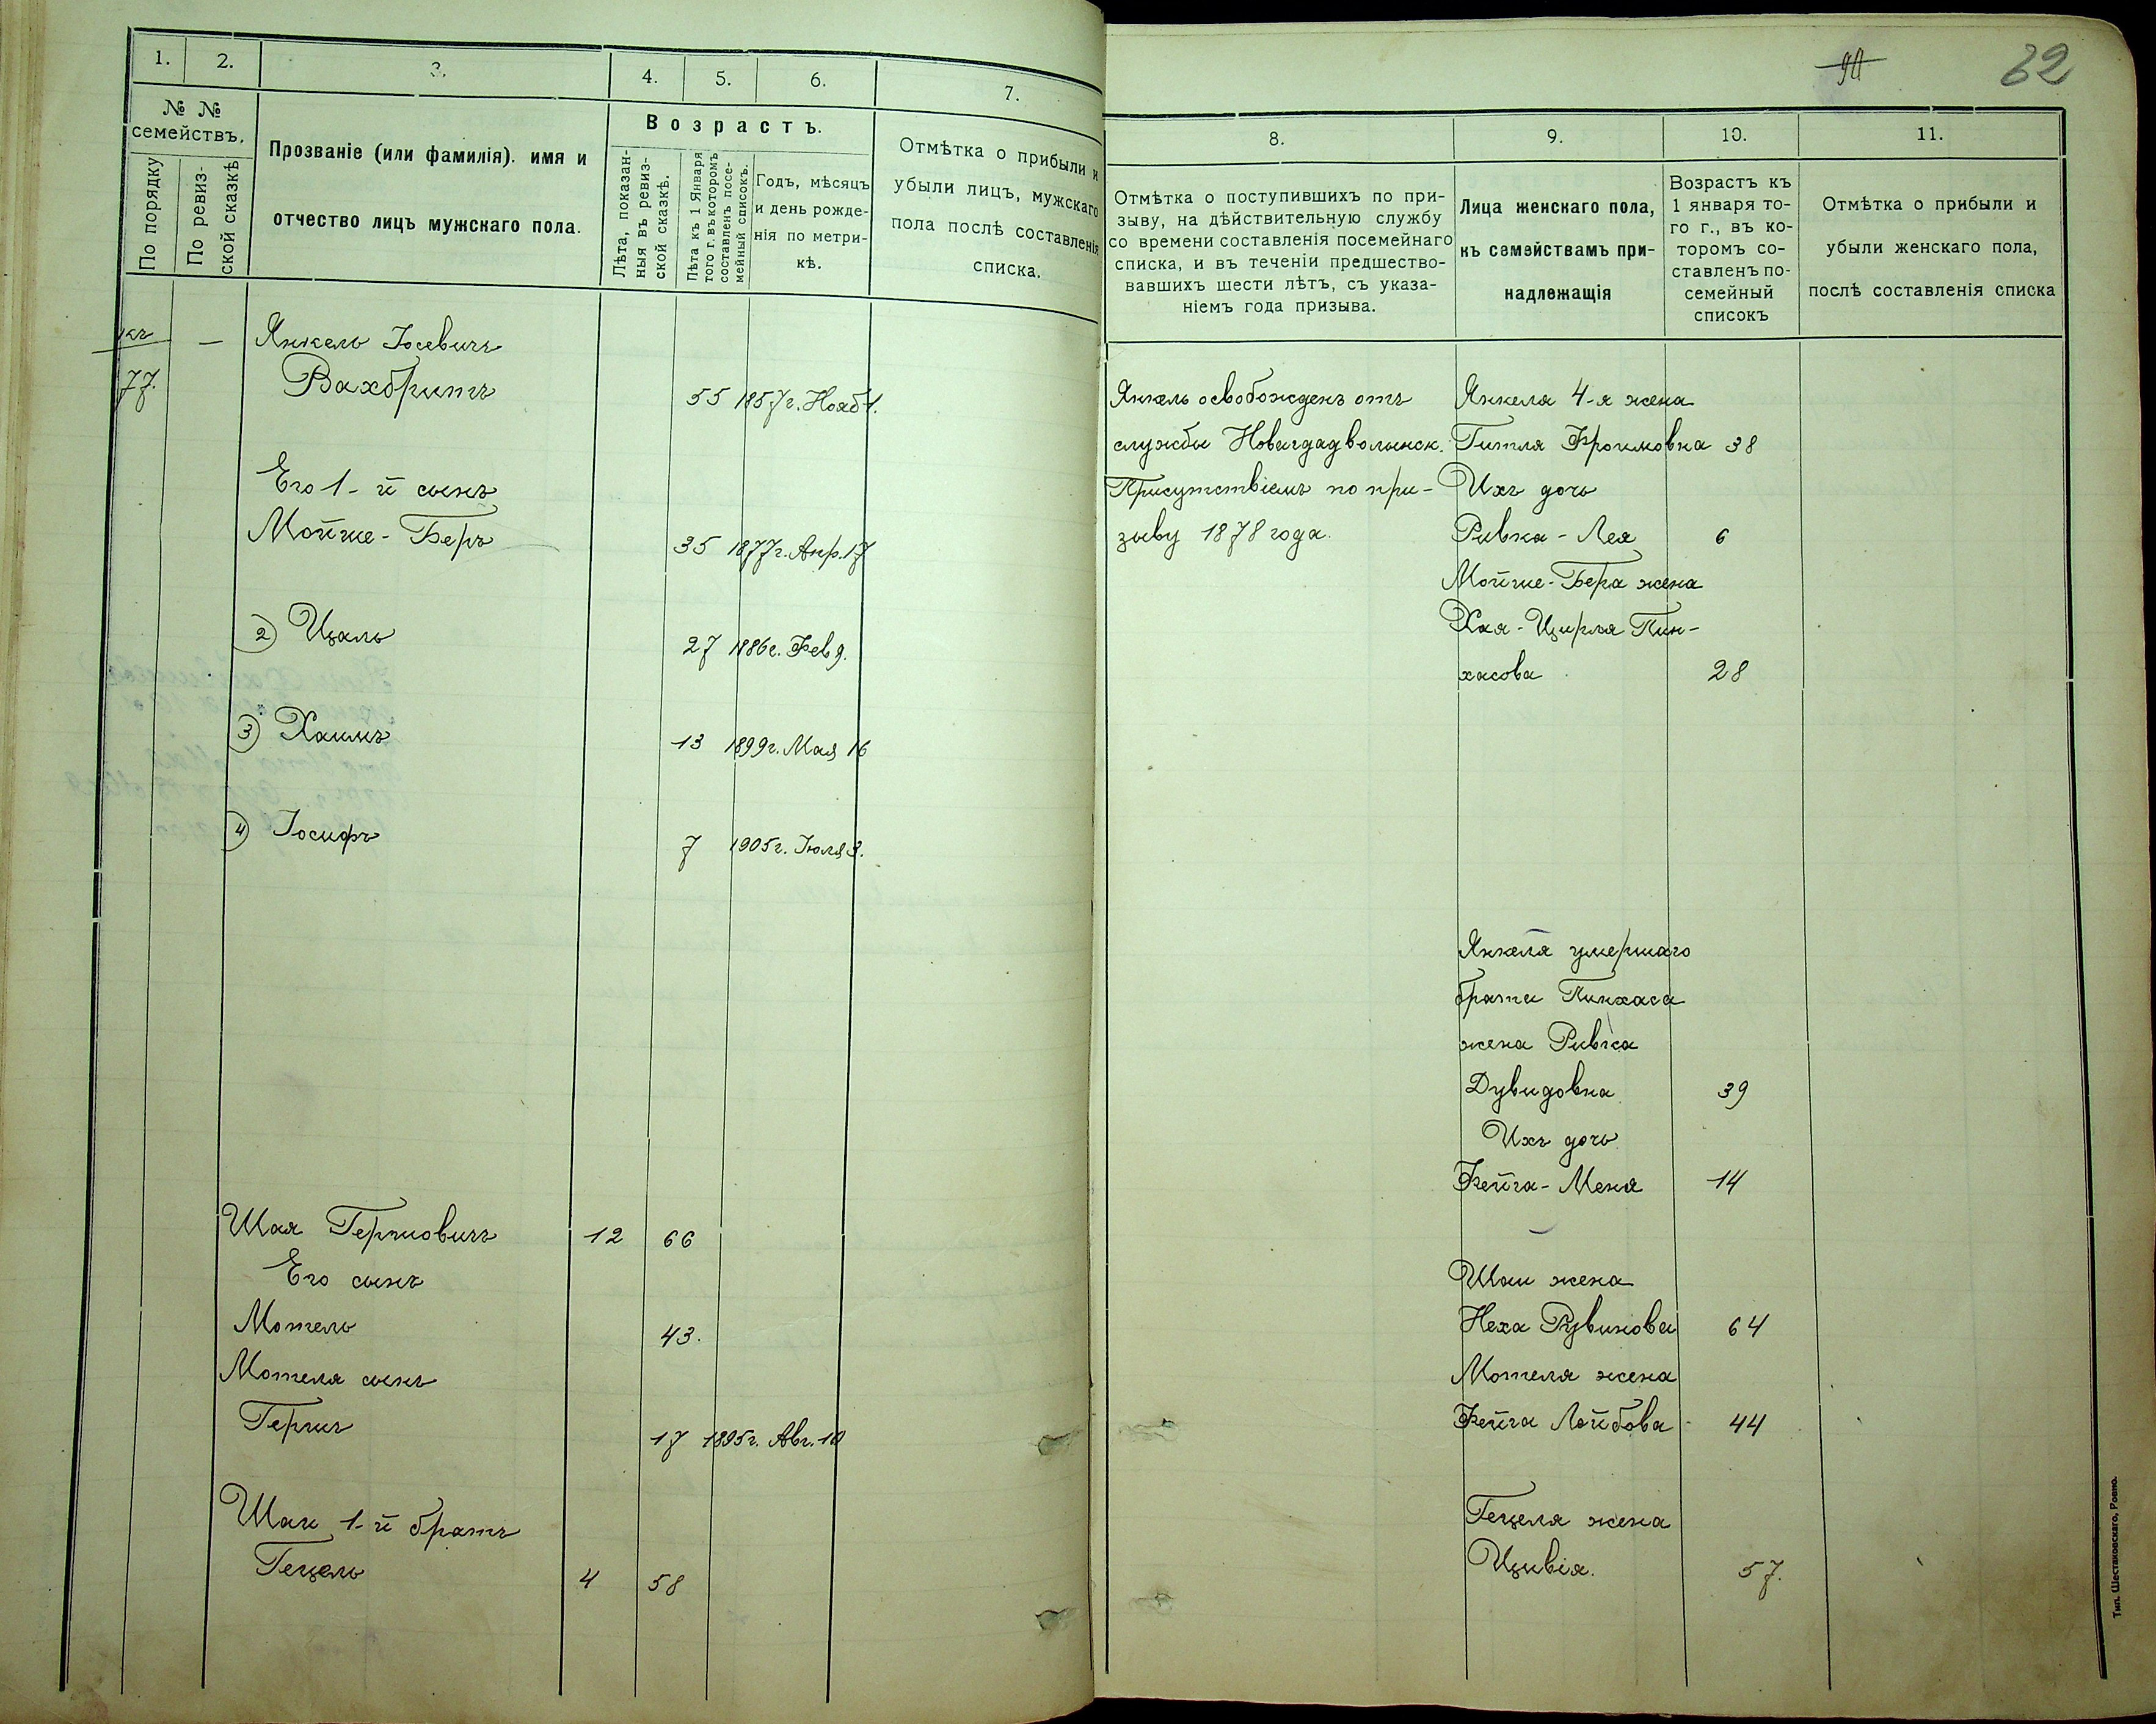 1. 2. 3. 4. 5. 6. 7.
№ № семействъ.
По порядку
По ревизской сказкѣ
Прозваніе (или фамилія). имя и
отчество лицъ мужскаго пола.
Возрастъ.
Лѣта, показан-
ныя въ ревиз-
ской сказкѣ.
Лѣта къ 1 Января
того г. въ которомъ
составленъ посе-
мейный списокъ.
Годъ, мѣсяцъ
и день рожде-
нія по метри-
кѣ.
Отмѣтка о прибыли и
убыли лицъ, мужскаго
пола послѣ составленія
списка.
къ
77.
— Янкель Іосевичъ
Вахбритъ 55 1857 г. Нояб 1.
Его 1-й сынъ
Мойше-Беръ 35 1877 г. Апр. 17
2) Ицаль 27 1886 г. Фев 9.
3) Хаимъ 13 1899 г. Мая 16
4) Іосифъ 7 1905 г. Іюля 3.
Шая Гершовичъ 12 66
Его сынъ
Мотель 43.
Мотеля сынъ
Гершъ 17 1895 г. Авг. 10
Шаи 1-й братъ
Гецель 4 58
90 32
8. 9. 10. 11.
Отмѣтка о поступившихъ по при-
зыву, на дѣйствительную службу
со времени составленія посемейнаго
списка, и въ теченіи предшество-
вавшихъ шести лѣтъ, съ указа-
ніемъ года призыва.
Лица женскаго пола,
къ семействамъ при-
надлежащія
Возрастъ къ
1 января то-
го г., въ ко-
торомъ со-
ставленъ по-
семейный
списокъ
Отмѣтка о прибыли и
убыли женскаго пола,
послѣ составленія списка
Янкель освобожденъ отъ
службы Новагдадволынск.
Присутствіемъ по при-
зыву 1878 года.
Янкеля 4-я жена
Гитля Фроимовна 38
Ихъ дочь
Ривка-Лея 6
Мойше-Бера жена
Хая-Цирля Пин-
хасова 28
Янкеля умершаго
брата Пинхаса
жена Ривка
Дувидовна 39
Ихъ дочь
Фейга-Меня 14
Шаи жена
Неха Рувинова 64
Мотеля жена
Фейга Лейбова 44
Гецеля жена
Цивія. 57.
Тип. Шестаковскаго, Ровно.